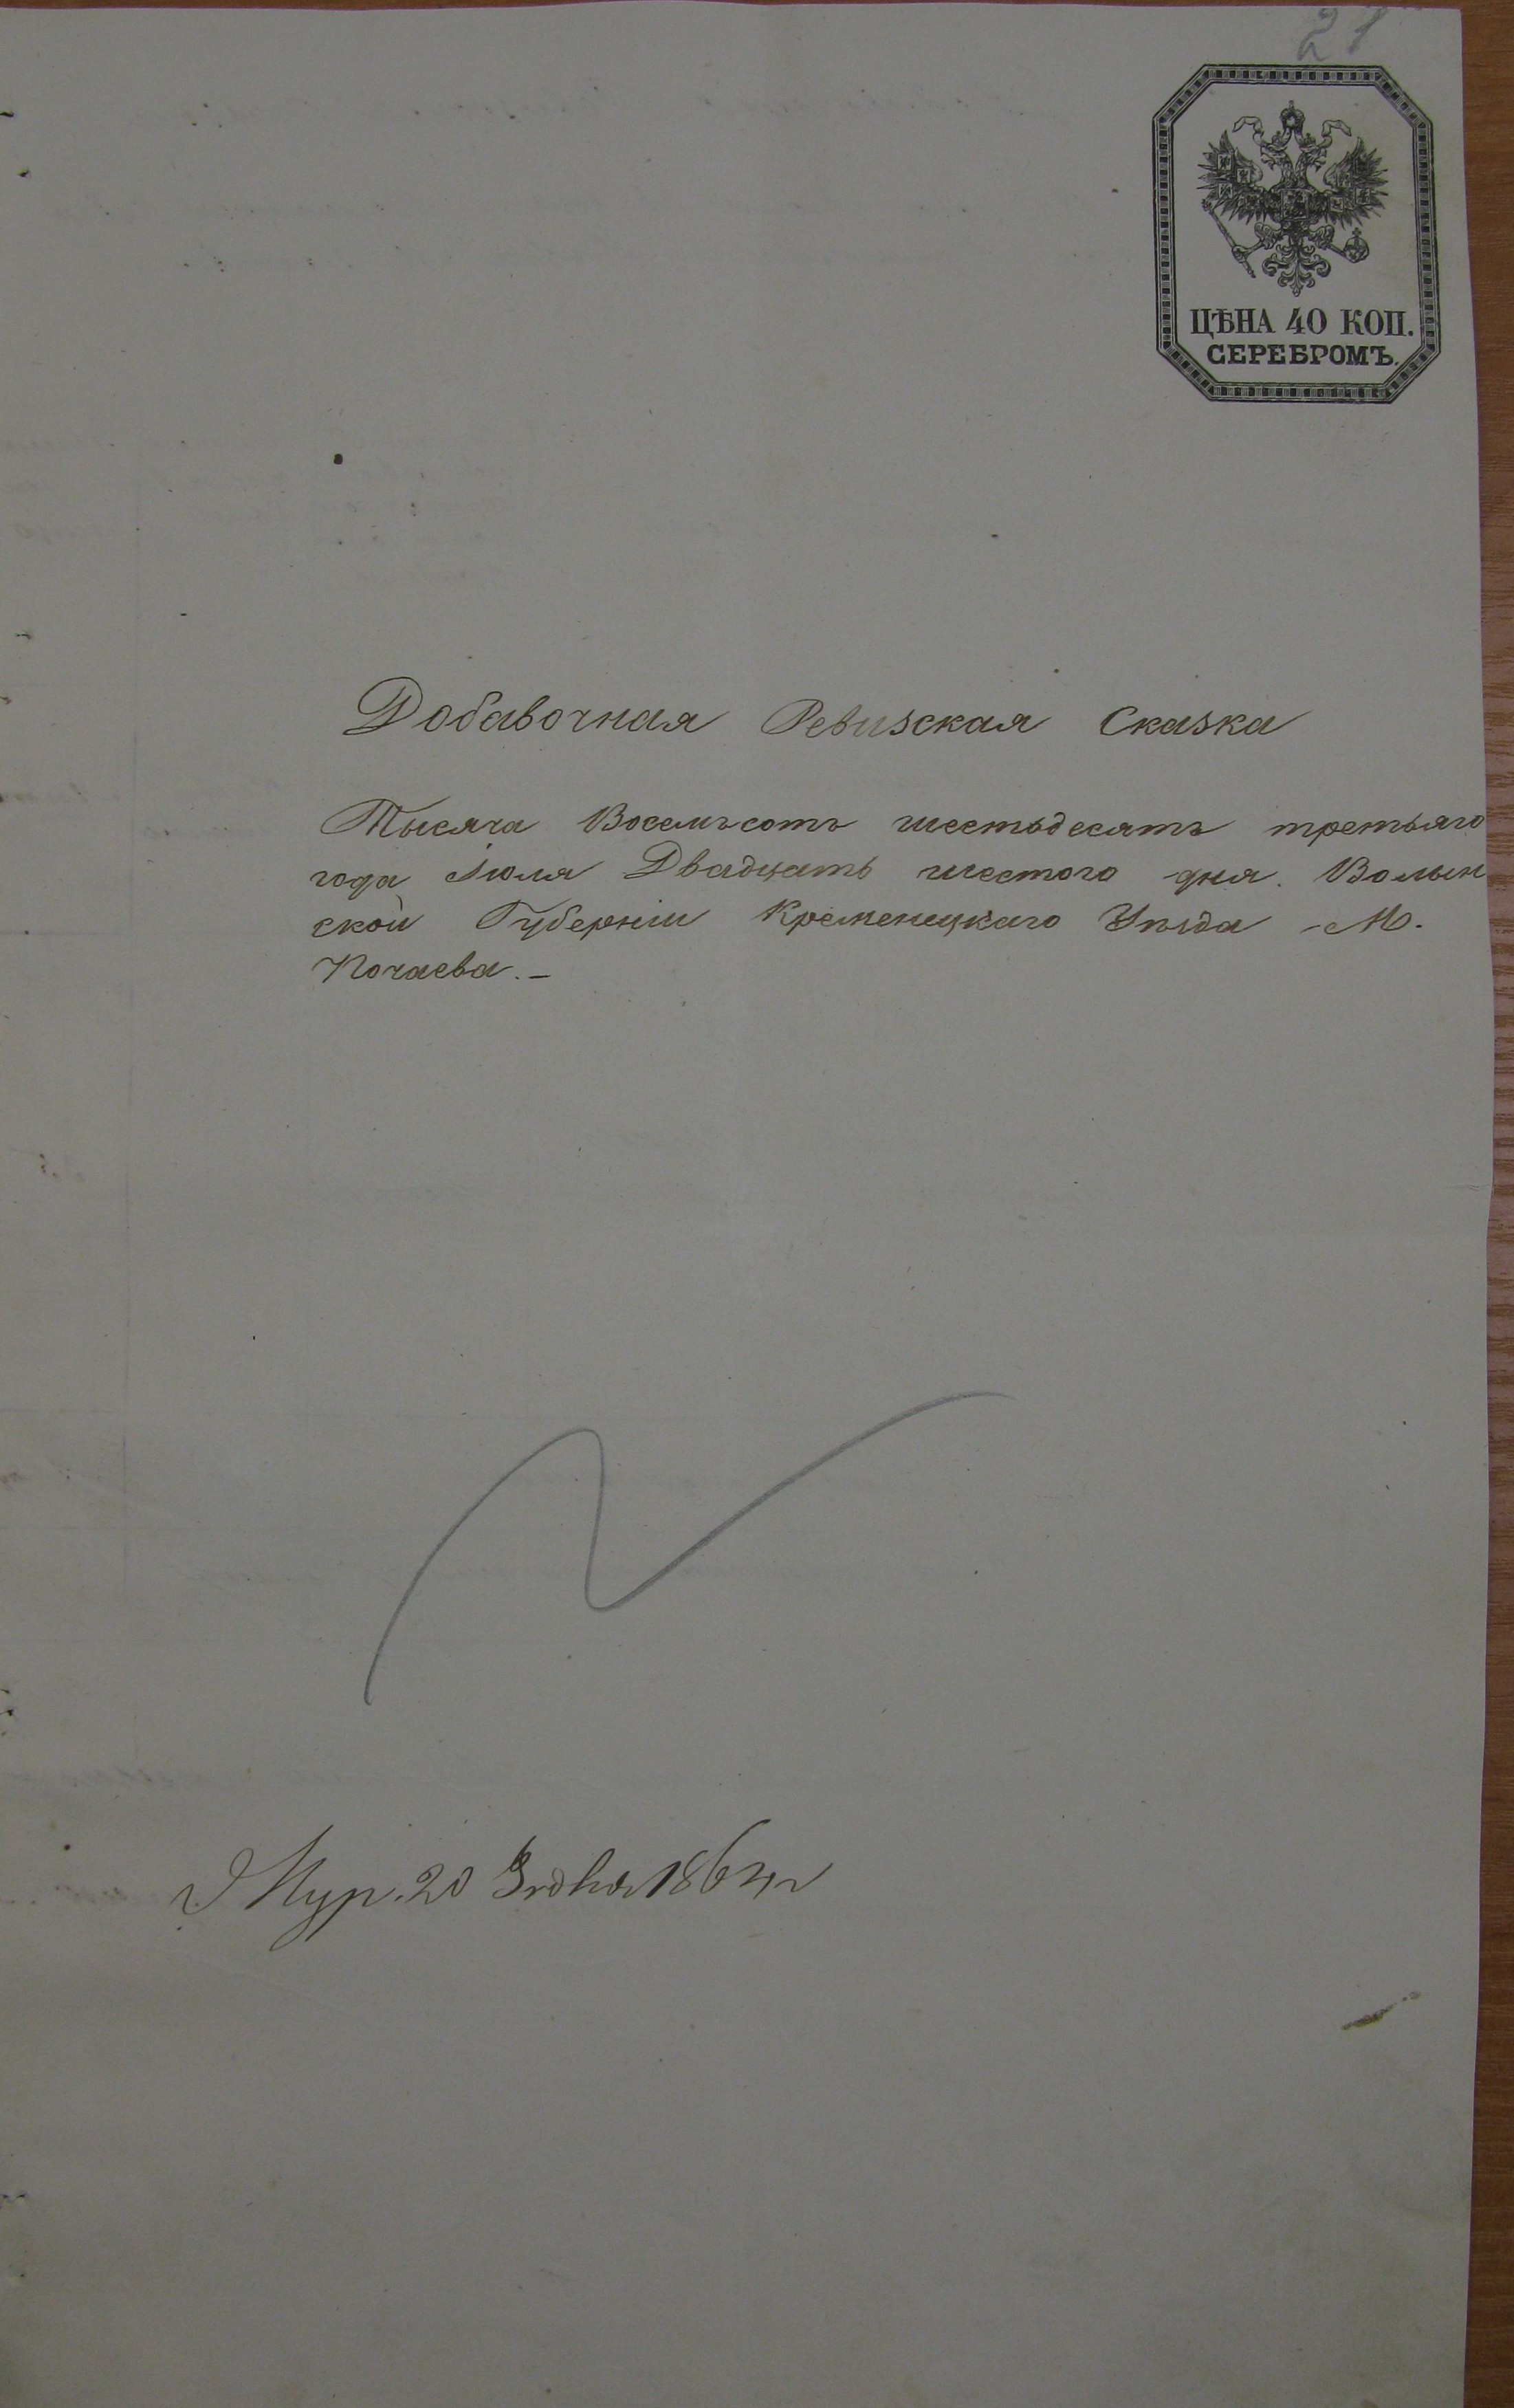 21
ЦѢНА 40 КОП.
СЕРЕБРОМЪ.
Добавочная Ревизская Сказка
Тысяча Восемьсотъ шестьдесятъ третьяго
года Іюля Двадцать шестого дня. Волын
ской Губерніи Кременецкаго Уѣзда М.
Почаева. –
Жур. 20 1864